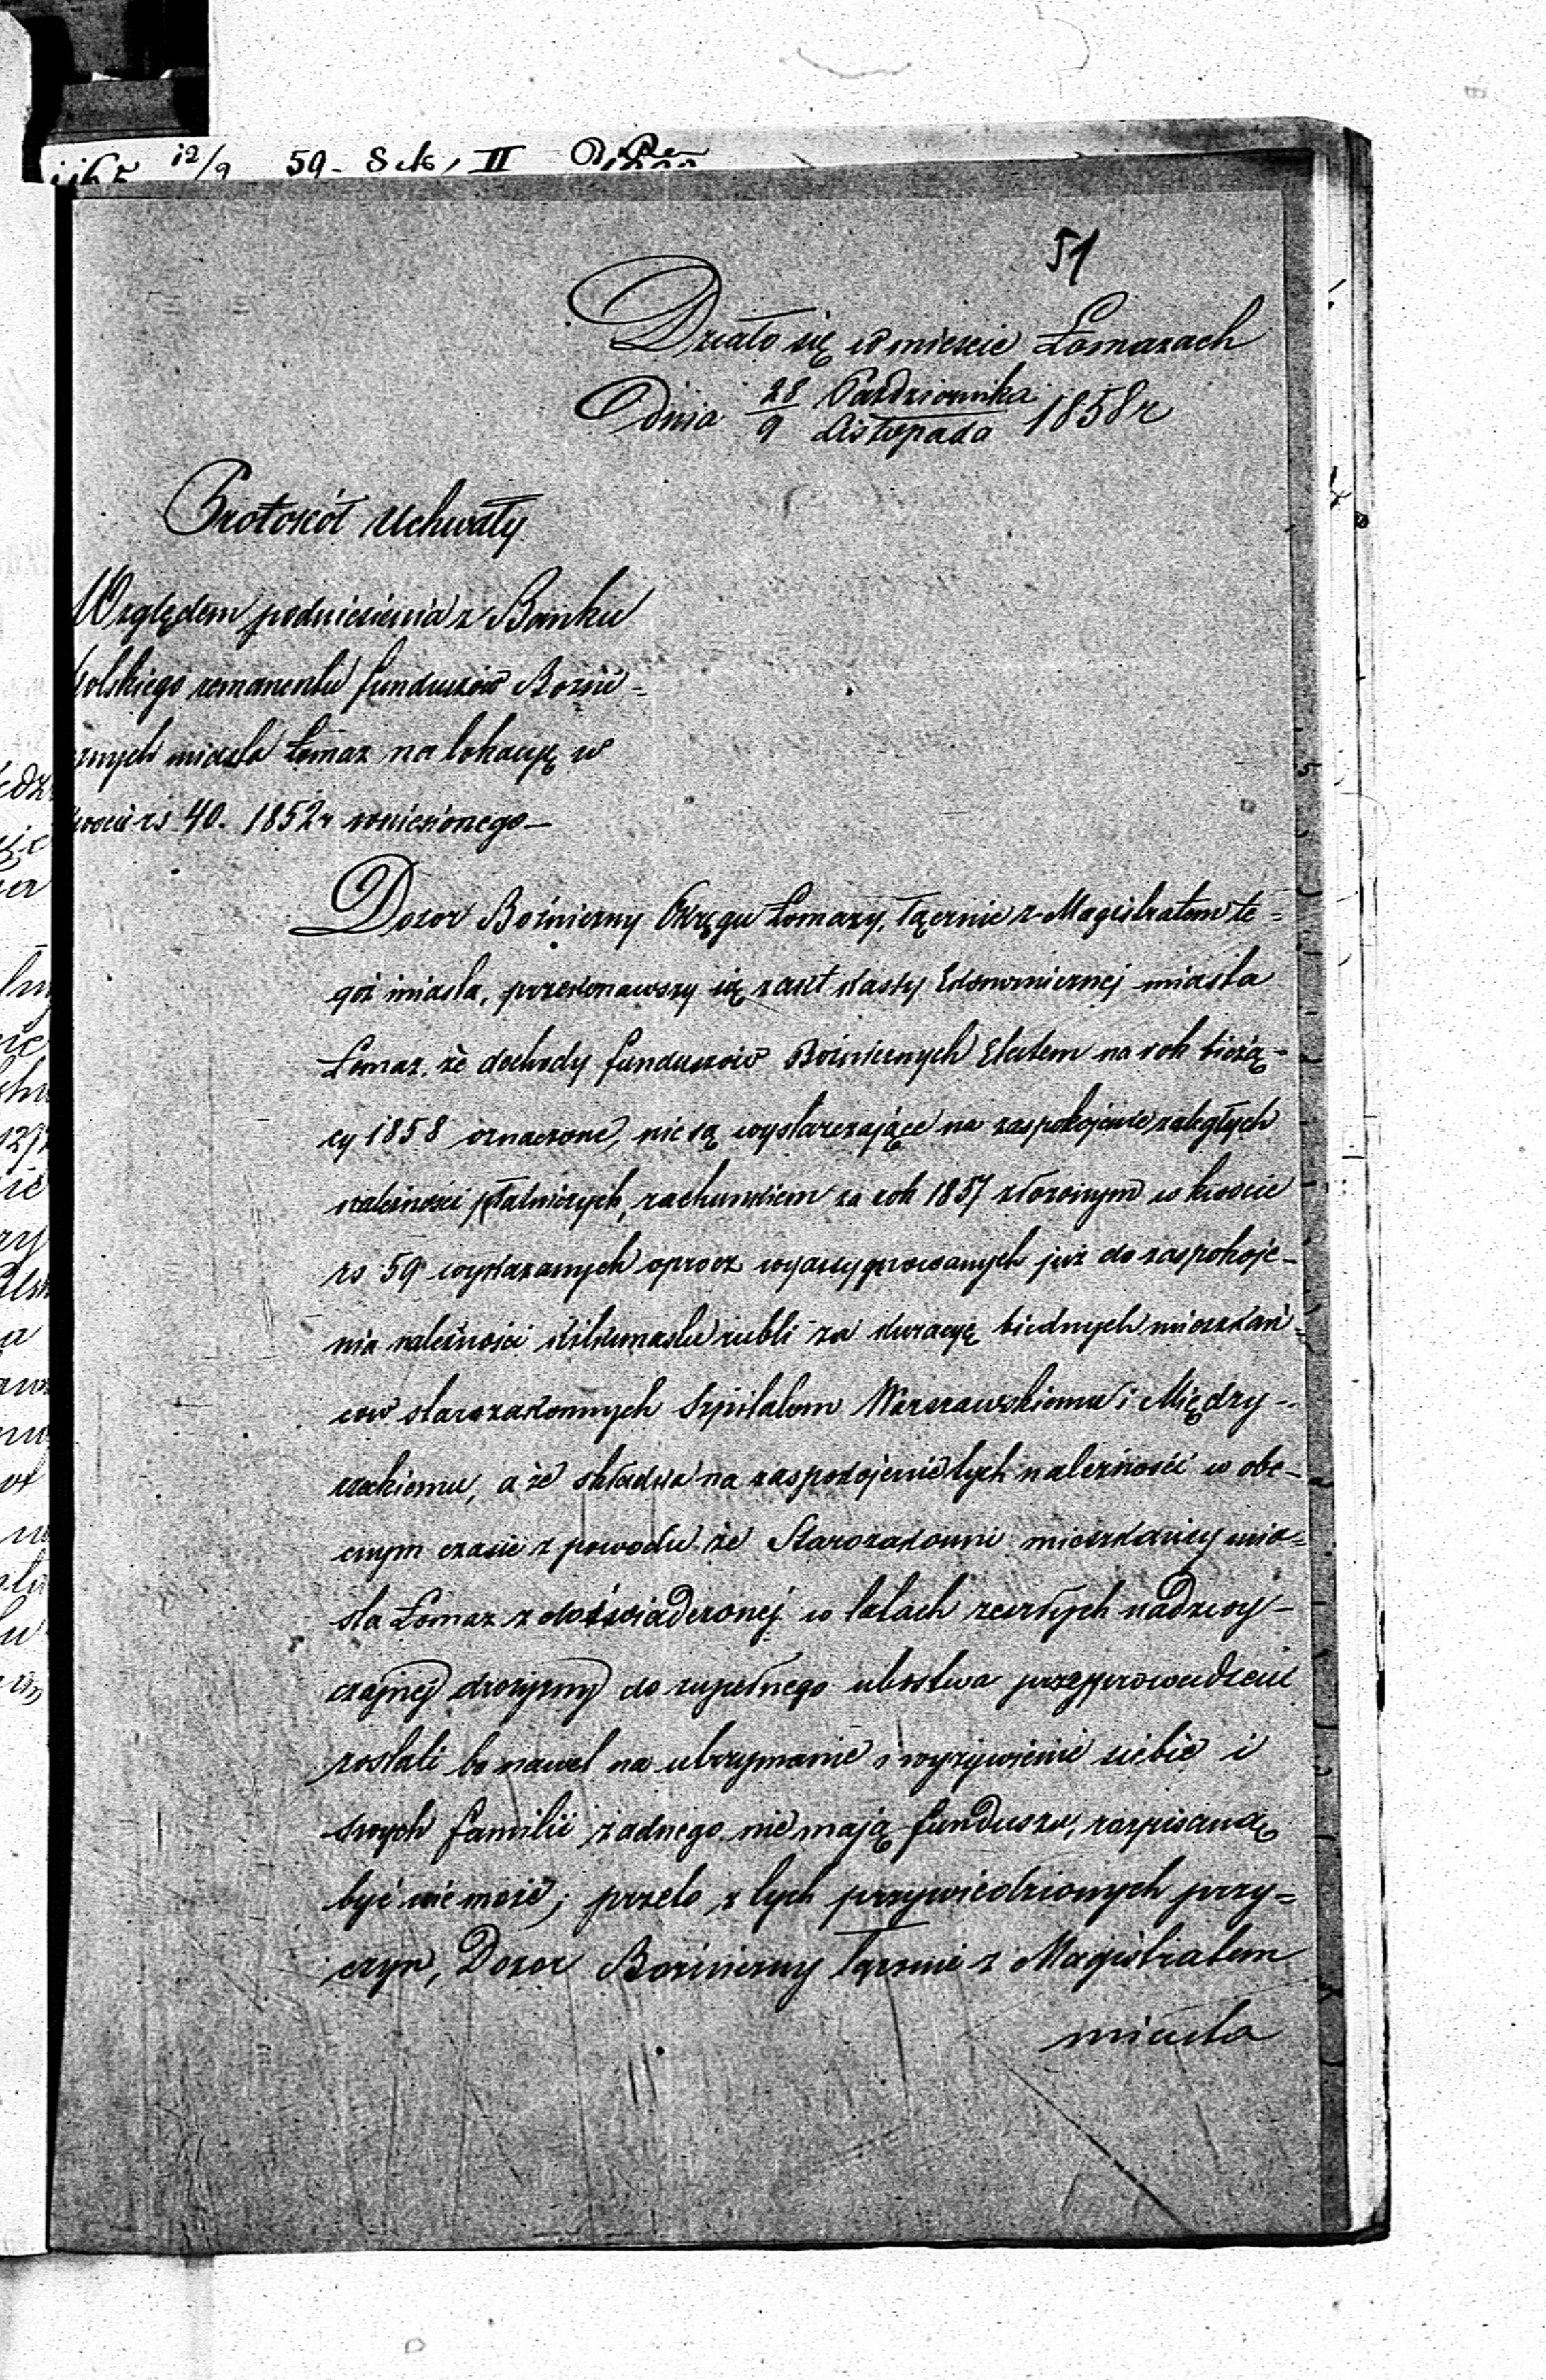 12/9 59 - Sek, II
51
Działo się w mieście Łomazach
Dnia 28 Października / 9 Listopada 1858 r
Protokół Uchwały
Względem podniesienia z Banku
Polskiego remanentu funduszów Bożni=
cznych miasta Łomaz na lokacyę w
kwocie rs 40. 1852 r wniesionego—
Dozor Bożniczny Okręgu Łomazy, łącznie z Magistratem te=
goż miasta, przekonawszy się z akt Kassy Ekonomicznej miasta
Łomaz, że dochody funduszów Bożnicznych Etatem na rok bieżą=
cy 1858 oznaczone, nie są wystarczające na zaspokojenie zaległych
należności płatniczych, rachunkiem za rok 1857 złożonym w kwocie
rs 59 wykazanych oprocz wyassygnowanych już do zaspokoje-
nia należności kilkunastu rubli za kuracyę biednych mieszkań=
cow starozakonnych Szpitalom Warszawskiemu i Między-
rzeckiemu, a że składka na zaspokojenie tych należności w obe-
cnym czasie z powodu że Starozakonni mieszkańcy mia=
sta Łomaz z doświadczonej w latach zeszłych nadzwy-
czajnej drożyzny do zupełnego ubostwa przyprowadzeni
zostali bo nawet na utrzymanie i wyżywienie siebie i
swych familii żadnego nie mają funduszu, rozpisaną
być nie może; przeto z tych przywiedzionych przy=
czyn, Dozor Bożniczny łącznie z Magistratem
miasta